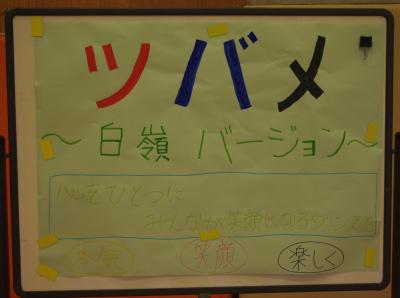 ツバメ
～白嶺 バージョン～
心をひとつに
みんなが笑顔になるダンスを
本気 笑顔 楽しく